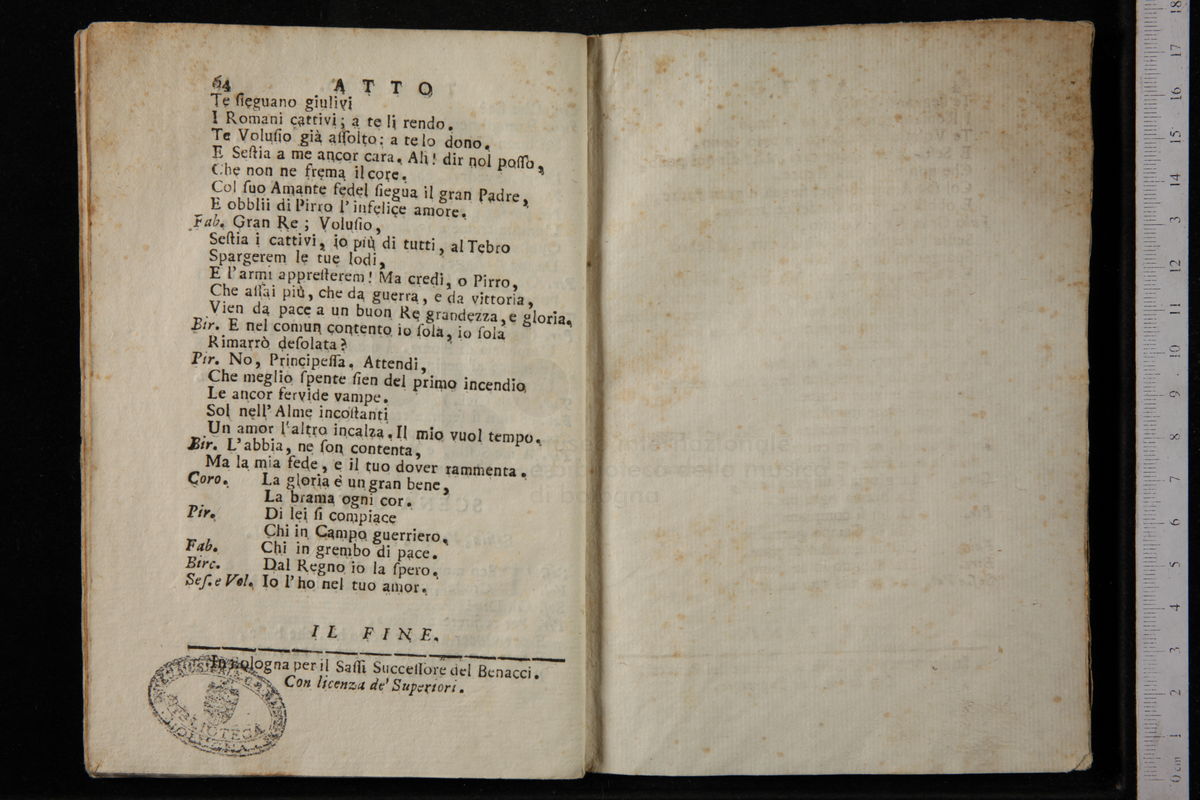 64 ATTO
Te ſieguano giulivi
I Romani cattivi; a te li rendo.
Te Voluſio già aſſolto; a te lo dono.
E Seſtia a me ancor cara. Ah! dir nol poſſo,
Che non ne frema il core.
Col ſuo Amante fedel ſiegua il gran Padre,
E obblii di Pirro l'infelice amore.
Fab. Gran Re; Voluſio,
Seſtia i cattivi, io più di tutti, al Tebro
Spargerem le tue lodi,
E l'armi appreſterem! Ma credi, o Pirro,
Che aſſai più, che da guerra, e da vittoria,
Vien da pace a un buon Re grandezza, e gloria.
Bir. E nel comun contento io ſola, io ſola
Rimarrò deſolata?
Pir. No, Principeſſa. Attendi,
Che meglio ſpente ſien del primo incendio
Le ancor fervide vampe.
Sol nell'Alme incoſtanti
Un amor l'altro incalza. Il mio vuol tempo.
Bir. L'abbia, ne ſon contenta,
Ma la mia fede, e il tuo dover rammenta.
Coro. La gloria è un gran bene,
La brama ogni cor.
Pir. Di lei ſi compiace
Chi in Campo guerriero,
Fab. Chi in grembo di pace.
Birc. Dal Regno io la ſpero.
Seſ. e Vol. Io l'ho nel tuo amor.
IL FINE.
In Bologna per il Saſſi Succeſſore del Benacci.
Con licenza de' Superiori.
BIBLIOTECA
museo internazionale
e biblioteca della musica
di bologna
0 cm 1 2 3 4 5 6 7 8 9 10 11 12 13 14 15 16 17 18